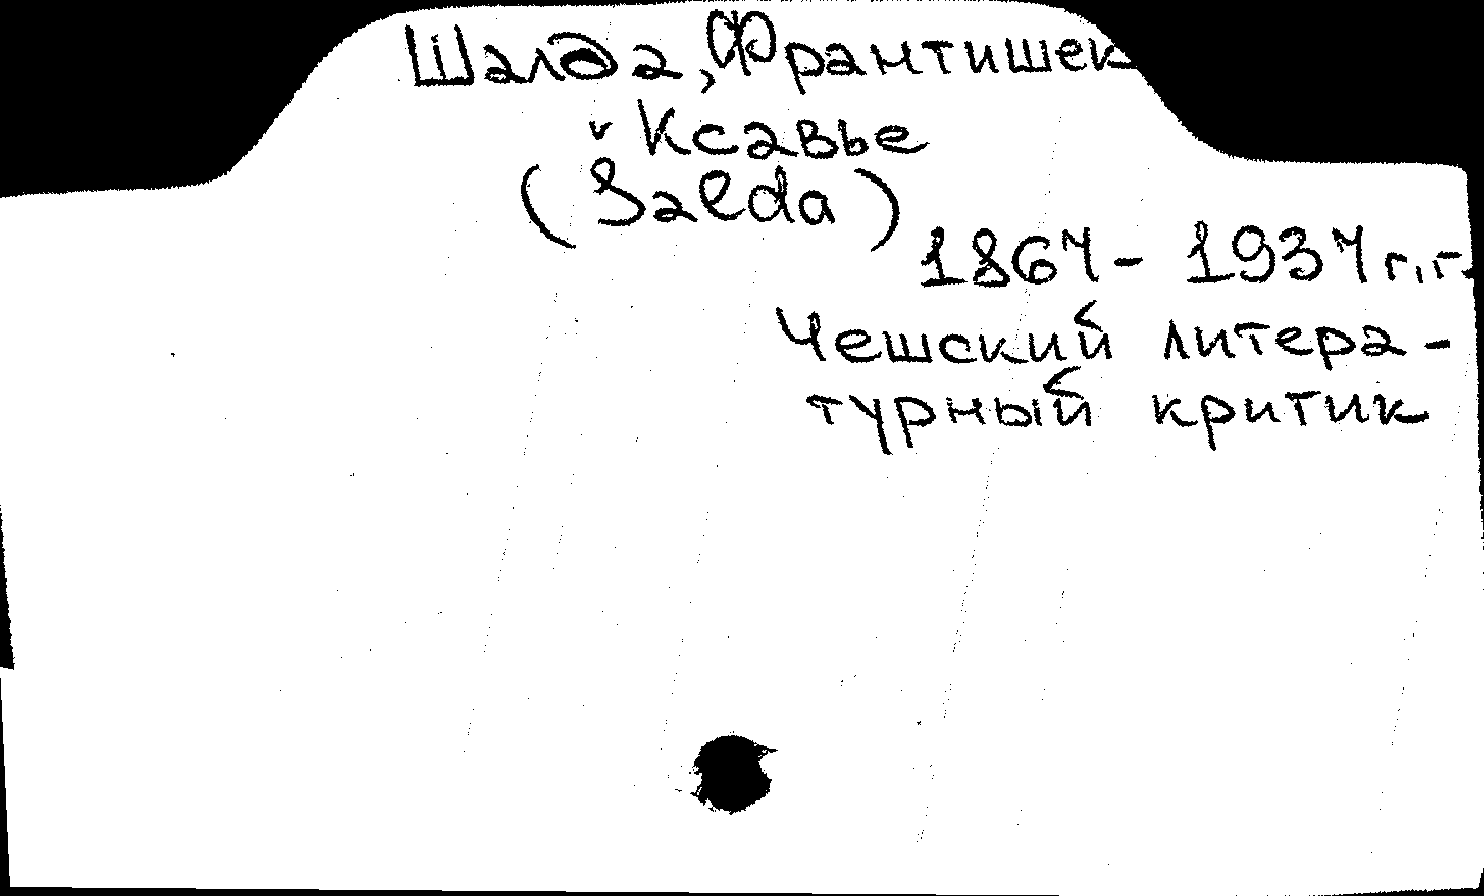 Шалда, Франтишек
Ксавье
(Šalda)
1867 - 1937 г.г.
Чешский литера-
турный критик